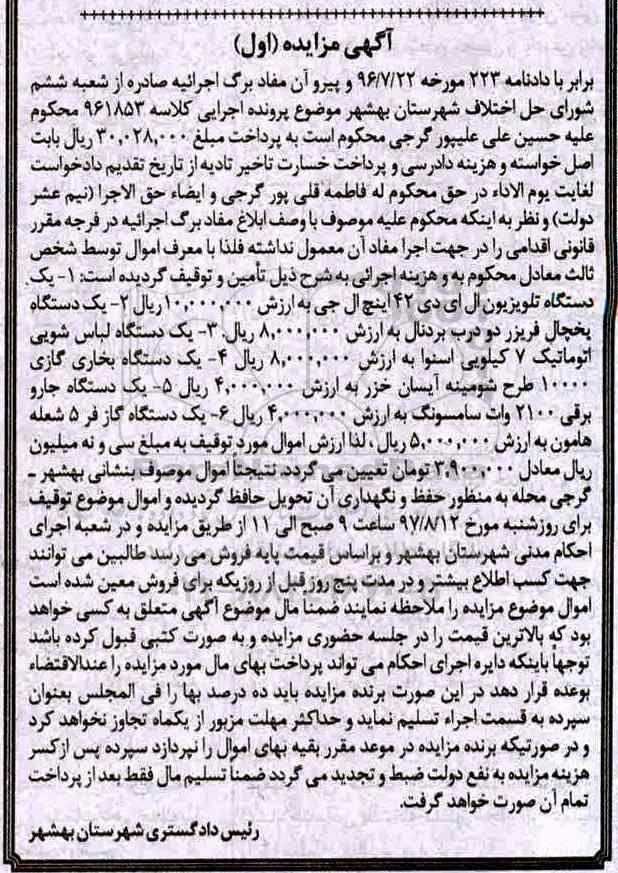 آگهی مزایده (اول)
برابر با دادنامه ۲۲۳ مورخه ۹۶/۷/۲۲ و پیرو آن مفاد برگ اجرائیه صادره از شعبه ششم
شورای حل اختلاف شهرستان بهشهر موضوع پرونده اجرایی کلاسه ۹۶۱۸۵۳ محکوم
علیه حسین علی علیپور گرجی محکوم است به پرداخت مبلغ ۳۰,۰۲۸,۰۰۰ ریال بابت
اصل خواسته و هزینه دادرسی و پرداخت خسارت تاخیر تادیه از تاریخ تقدیم دادخواست
لغایت یوم الاداء در حق محکوم له فاطمه قلی پور گرجی و ایضاء حق الاجرا (نیم عشر
دولت) و نظر به اینکه محکوم علیه موصوف با وصف ابلاغ مفاد برگ اجرائیه در فرجه مقرر
قانونی اقدامی را در جهت اجرا مفاد آن معمول نداشته فلذا با معرف اموال توسط شخص
ثالث معادل محکوم به و هزینه اجرائی به شرح ذیل تأمین و توقیف گردیده است: ۱- یک
دستگاه تلویزیون ال ای دی ۴۲ اینچ ال جی به ارزش ۱۰,۰۰۰,۰۰۰ ریال ۲- یک دستگاه
یخچال فریزر دو درب بردنال به ارزش ۸,۰۰۰,۰۰۰ ریال. ۳- یک دستگاه لباس شویی
اتوماتیک ۷ کیلویی اسنوا به ارزش ۸,۰۰۰,۰۰۰ ریال ۴- یک دستگاه بخاری گازی
۱۰۰۰۰ طرح شومینه آیسان خزر به ارزش ۴,۰۰۰,۰۰۰ ریال ۵- یک دستگاه جارو
برقی ۲۱۰۰ وات سامسونگ به ارزش ۴,۰۰۰,۰۰۰ ریال ۶- یک دستگاه گاز فر ۵ شعله
هامون به ارزش ۵,۰۰۰,۰۰۰ ریال ، لذا ارزش اموال مورد توقیف به مبلغ سی و نه میلیون
ریال معادل ۳,۹۰۰,۰۰۰ تومان تعیین می گردد. نتیجتاً اموال موصوف بنشانی بهشهر ـ
گرجی محله به منظور حفظ و نگهداری آن تحویل حافظ گردیده و اموال موضوع توقیف
برای روزشنبه مورخ ۹۷/۸/۱۲ ساعت ۹ صبح الی ۱۱ از طریق مزایده و در شعبه اجرای
احکام مدنی شهرستان بهشهر و براساس قیمت پایه فروش می رسد طالبین می توانند
جهت کسب اطلاع بیشتر و در مدت پنج روز قبل از روزیکه برای فروش معین شده است
اموال موضوع مزایده را ملاحظه نمایند ضمنا مال موضوع آگهی متعلق به کسی خواهد
بود که بالاترین قیمت را در جلسه حضوری مزایده و به صورت کتبی قبول کرده باشد
توجهاً باینکه دایره اجرای احکام می تواند پرداخت بهای مال مورد مزایده را عندالاقتضاء
بوعده قرار دهد در این صورت برنده مزایده باید ده درصد بها را فی المجلس بعنوان
سپرده به قسمت اجراء تسلیم نماید و حداکثر مهلت مزبور از یکماه تجاوز نخواهد کرد
و در صورتیکه برنده مزایده در موعد مقرر بقیه بهای اموال را نپردازد سپرده پس ازکسر
هزینه مزایده به نفع دولت ضبط و تجدید می گردد ضمناً تسلیم مال فقط بعد از پرداخت
تمام آن صورت خواهد گرفت.
رئیس دادگستری شهرستان بهشهر